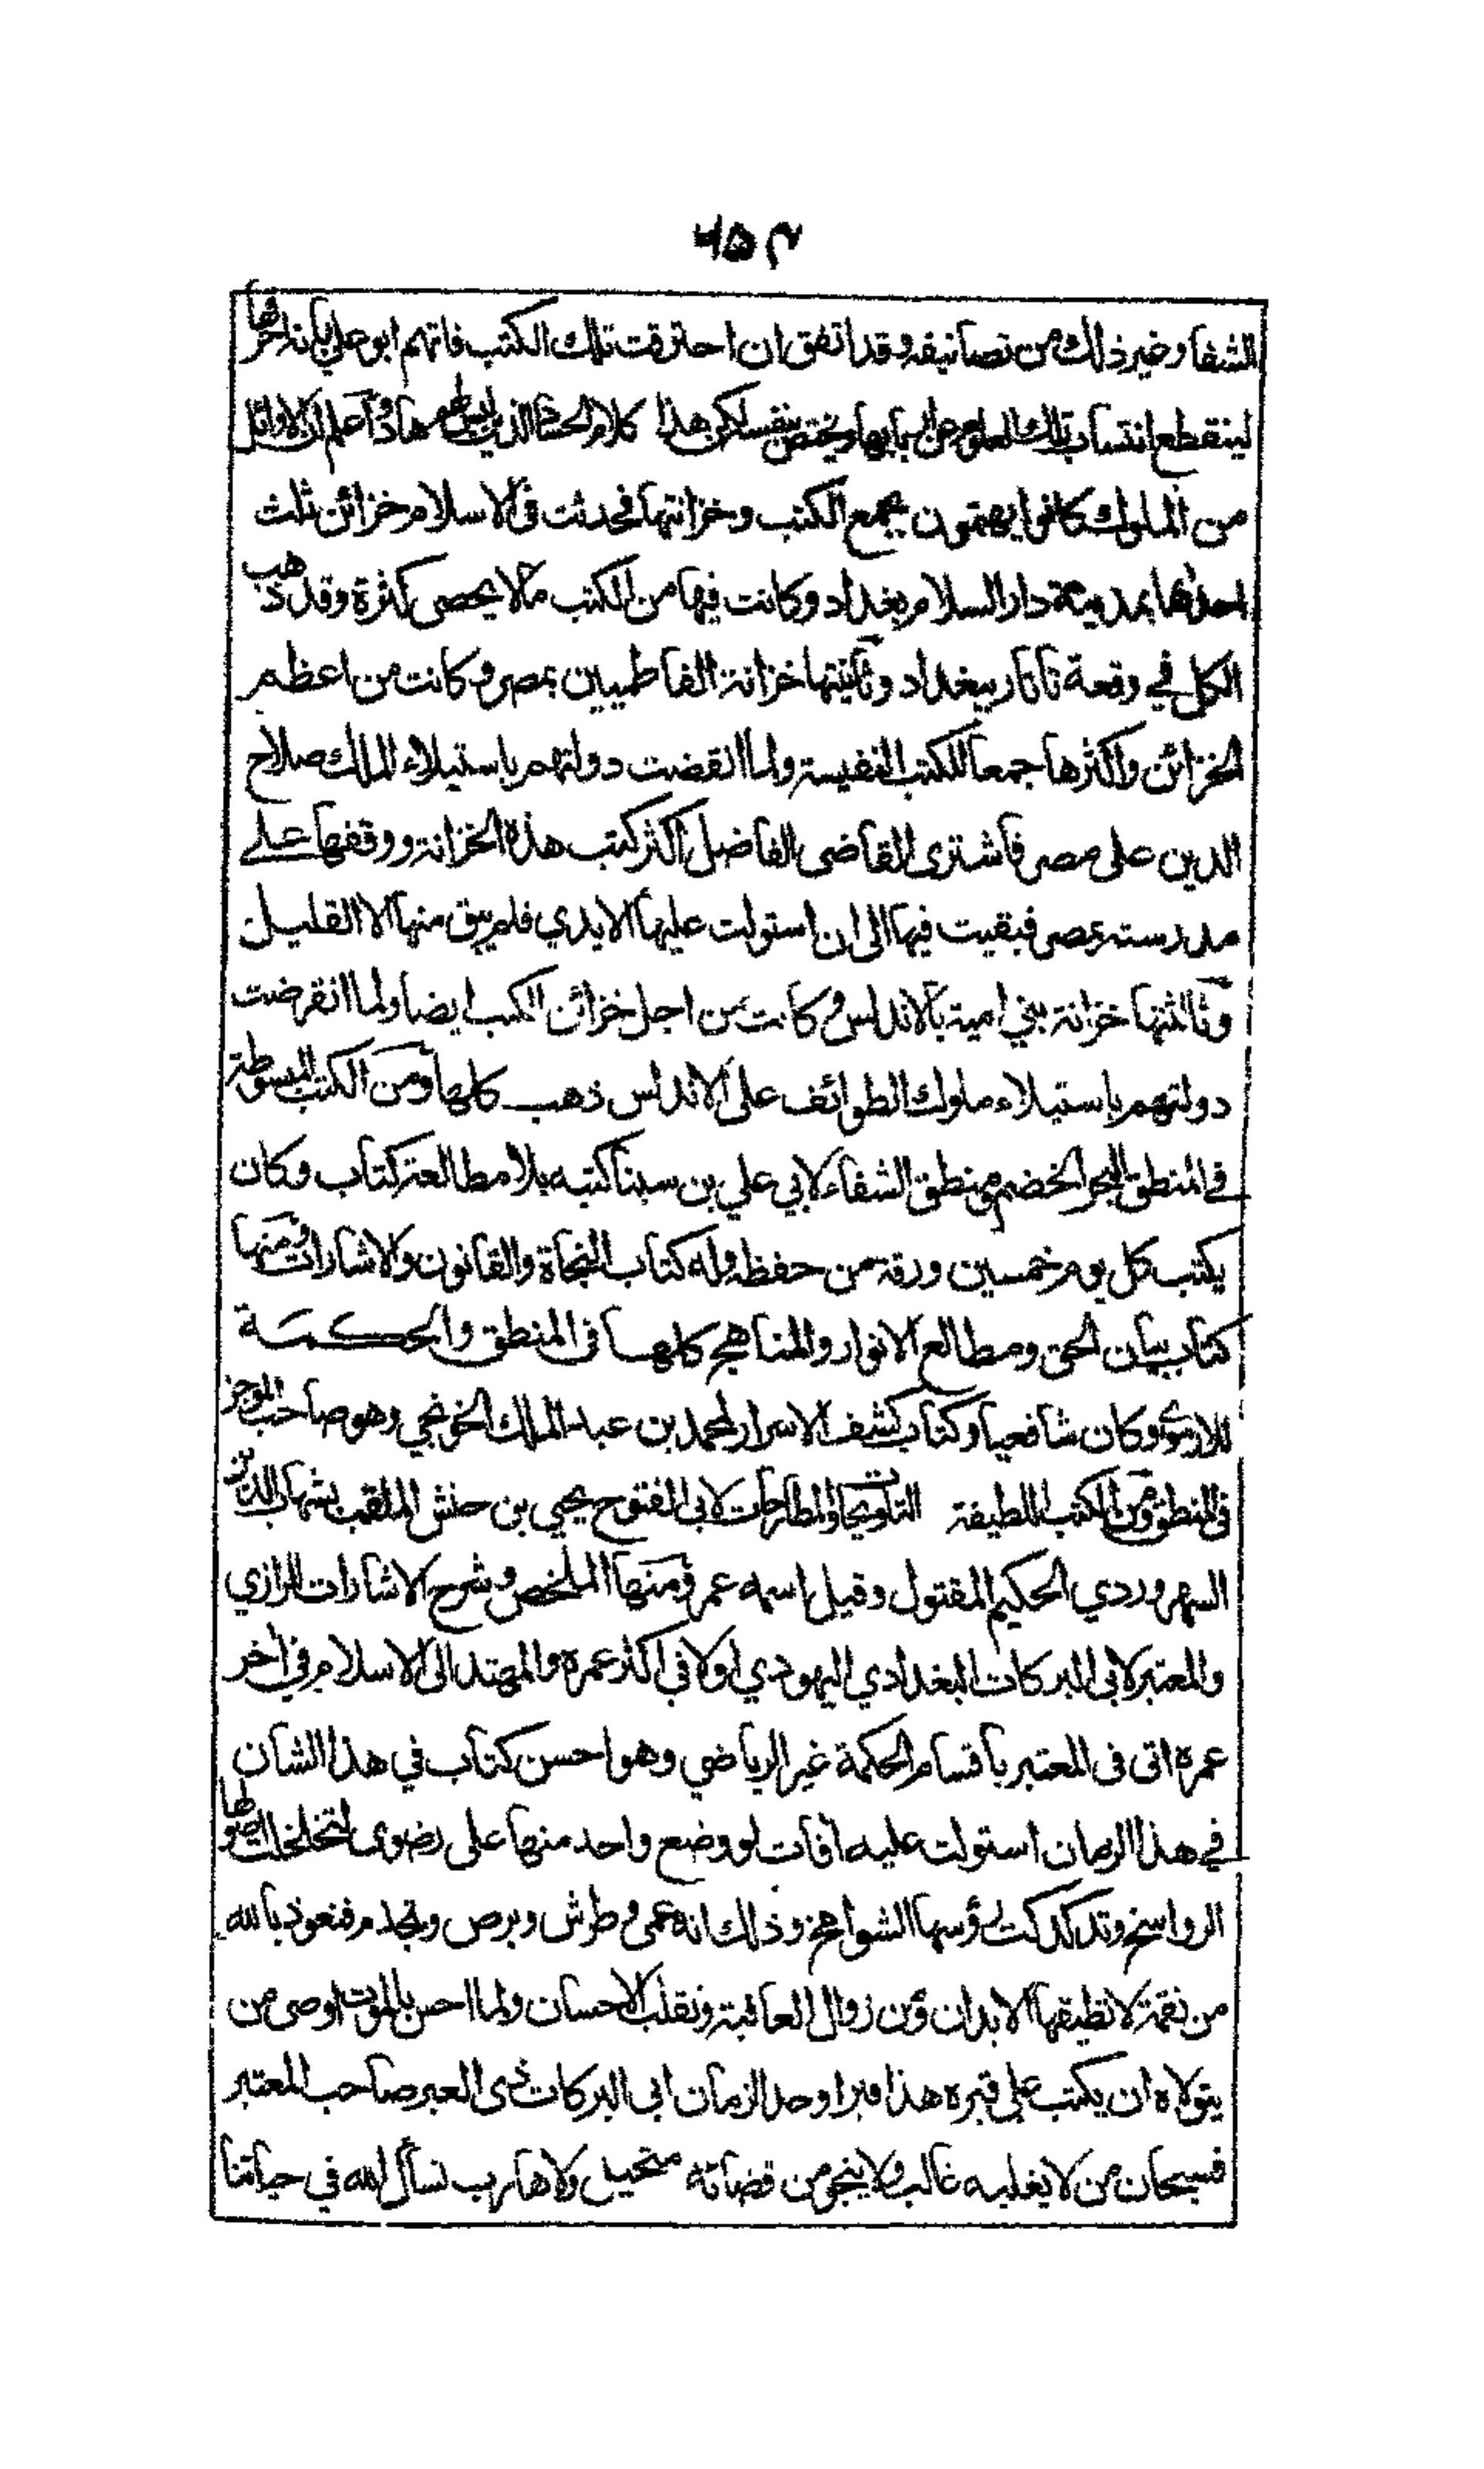 ٤٥٣
الشفا وغير ذلك من تصانيفه وقد اتفق ان احترقت تلك الكتب فاتهم ابو علي بأنه احرقها
لينقطع انتساب تلك العلوم عن اربابها ويختص بنفسه لكن هذا كلام الحساد الذي ليس بطعمها واعلم ان الاوائل
من الملوك كانوا يهتمون بجمع الكتب وخزانتها فحدثت في الاسلام خزائن ثلث
احداها بمدينة دار السلام بغداد وكانت فيها من الكتب ما لا يحصى كثرة وقد ذهب
الكل في وقعة تاتار ببغداد وثانيتها خزانة الفاطميين بمصر وكانت من اعظم
الخزائن واكثرها جمعا للكتب النفيسة ولما انقضت دولتهم باستيلاء الملك صلاح
الدين على مصر فاشترى القاضى الفاضل اكثر كتب هذه الخزانة ووقفها على
مدرسته بمصر فبقيت فيها الى ان استولت عليها الايدي فلم يبق منها الا القليل
وثالثتها خزانة بني امية بالاندلس وكانت من اجل خزائن الكتب ايضا ولما انقرضت
دولتهم باستيلاء ملوك الطوائف على الاندلس ذهب كلها ومن الكتب المبسوطة
في المنطق البحر الخضم ومنطق الشفاء لابي علي بن سينا كتبه بلا مطالعة كتاب وكان
يكتب كل يوم خمسين ورقة من حفظه وله كتاب النجاة والقانون والاشارات ومنها
كتاب بيان الحق ومطالع الانوار والمناهج كلها فى المنطق والحكمة
للارموي وكان شافعيا وكتاب كشف الاسرار لمحمد بن عبد الملك الخونجي وهو صاحب الموجز
فى المنطق ومن الكتب اللطيفة التلويحات والمطارحات لابى الفتوح يحيى بن حنش الملقب بشهاب الدين
السهروردي الحكيم المقتول وقيل اسمه عمر ومنها الملخص وشرح الاشارات للرازي
والمعتبر لابى البركات البغدادي اليهودي اولا فى اكثر عمره والمهتدى الى الاسلام في اخر
عمره اتى فى المعتبر باقسام الحكمة غير الرياضي وهو احسن كتاب في هذا الشان
في هذا الزمان استولت عليه آفات لو وضع واحد منها على رضوى لتخلخلت اصولها
الرواسخ وتدكدكت رؤسها الشوامخ وذلك انه عمى وطرش وبرص وتجذم فنعوذ بالله
من نقمة لا تطيقها الابدان ومن زوال العافية وتقلب الاحسان ولما احس بالموت اوصى من
يتولاه ان يكتب على قبره هذا قبر اوحد الزمان ابى البركات ذى العبر صاحب المعتبر
فسبحان من لا يغلبه غالب ولا ينجو من قضائه متحيل ولا هارب نسأل الله في حياتنا